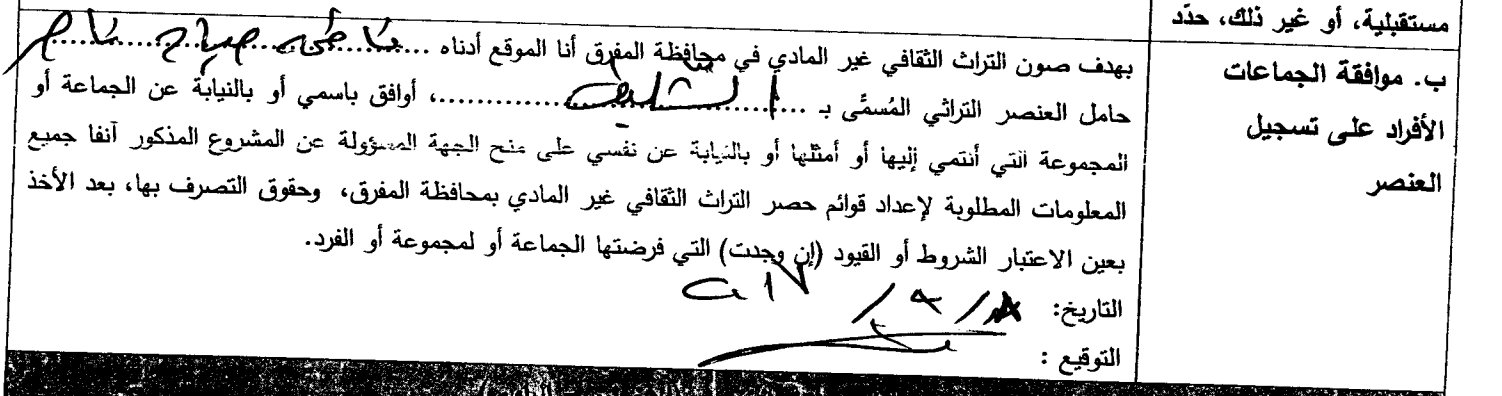 مستقبلية، أو غير ذلك، حدّد
ب. موافقة الجماعات
الأفراد على تسجيل
العنصر
بهدف صون التراث الثقافي غير المادي في محافظة المفرق أنا الموقع أدناه ... صباح ...
حامل العنصر التراثي المُسمَّى بـ ...........................، أوافق باسمي أو بالنيابة عن الجماعة أو
المجموعة التي أنتمي إليها أو أمثلها أو بالنيابة عن نفسي على منح الجهة المسؤولة عن المشروع المذكور آنفا جميع
المعلومات المطلوبة لإعداد قوائم حصر التراث الثقافي غير المادي بمحافظة المفرق، وحقوق التصرف بها، بعد الأخذ
بعين الاعتبار الشروط أو القيود (إن وجدت) التي فرضتها الجماعة أو لمجموعة أو الفرد.
التاريخ:
التوقيع :